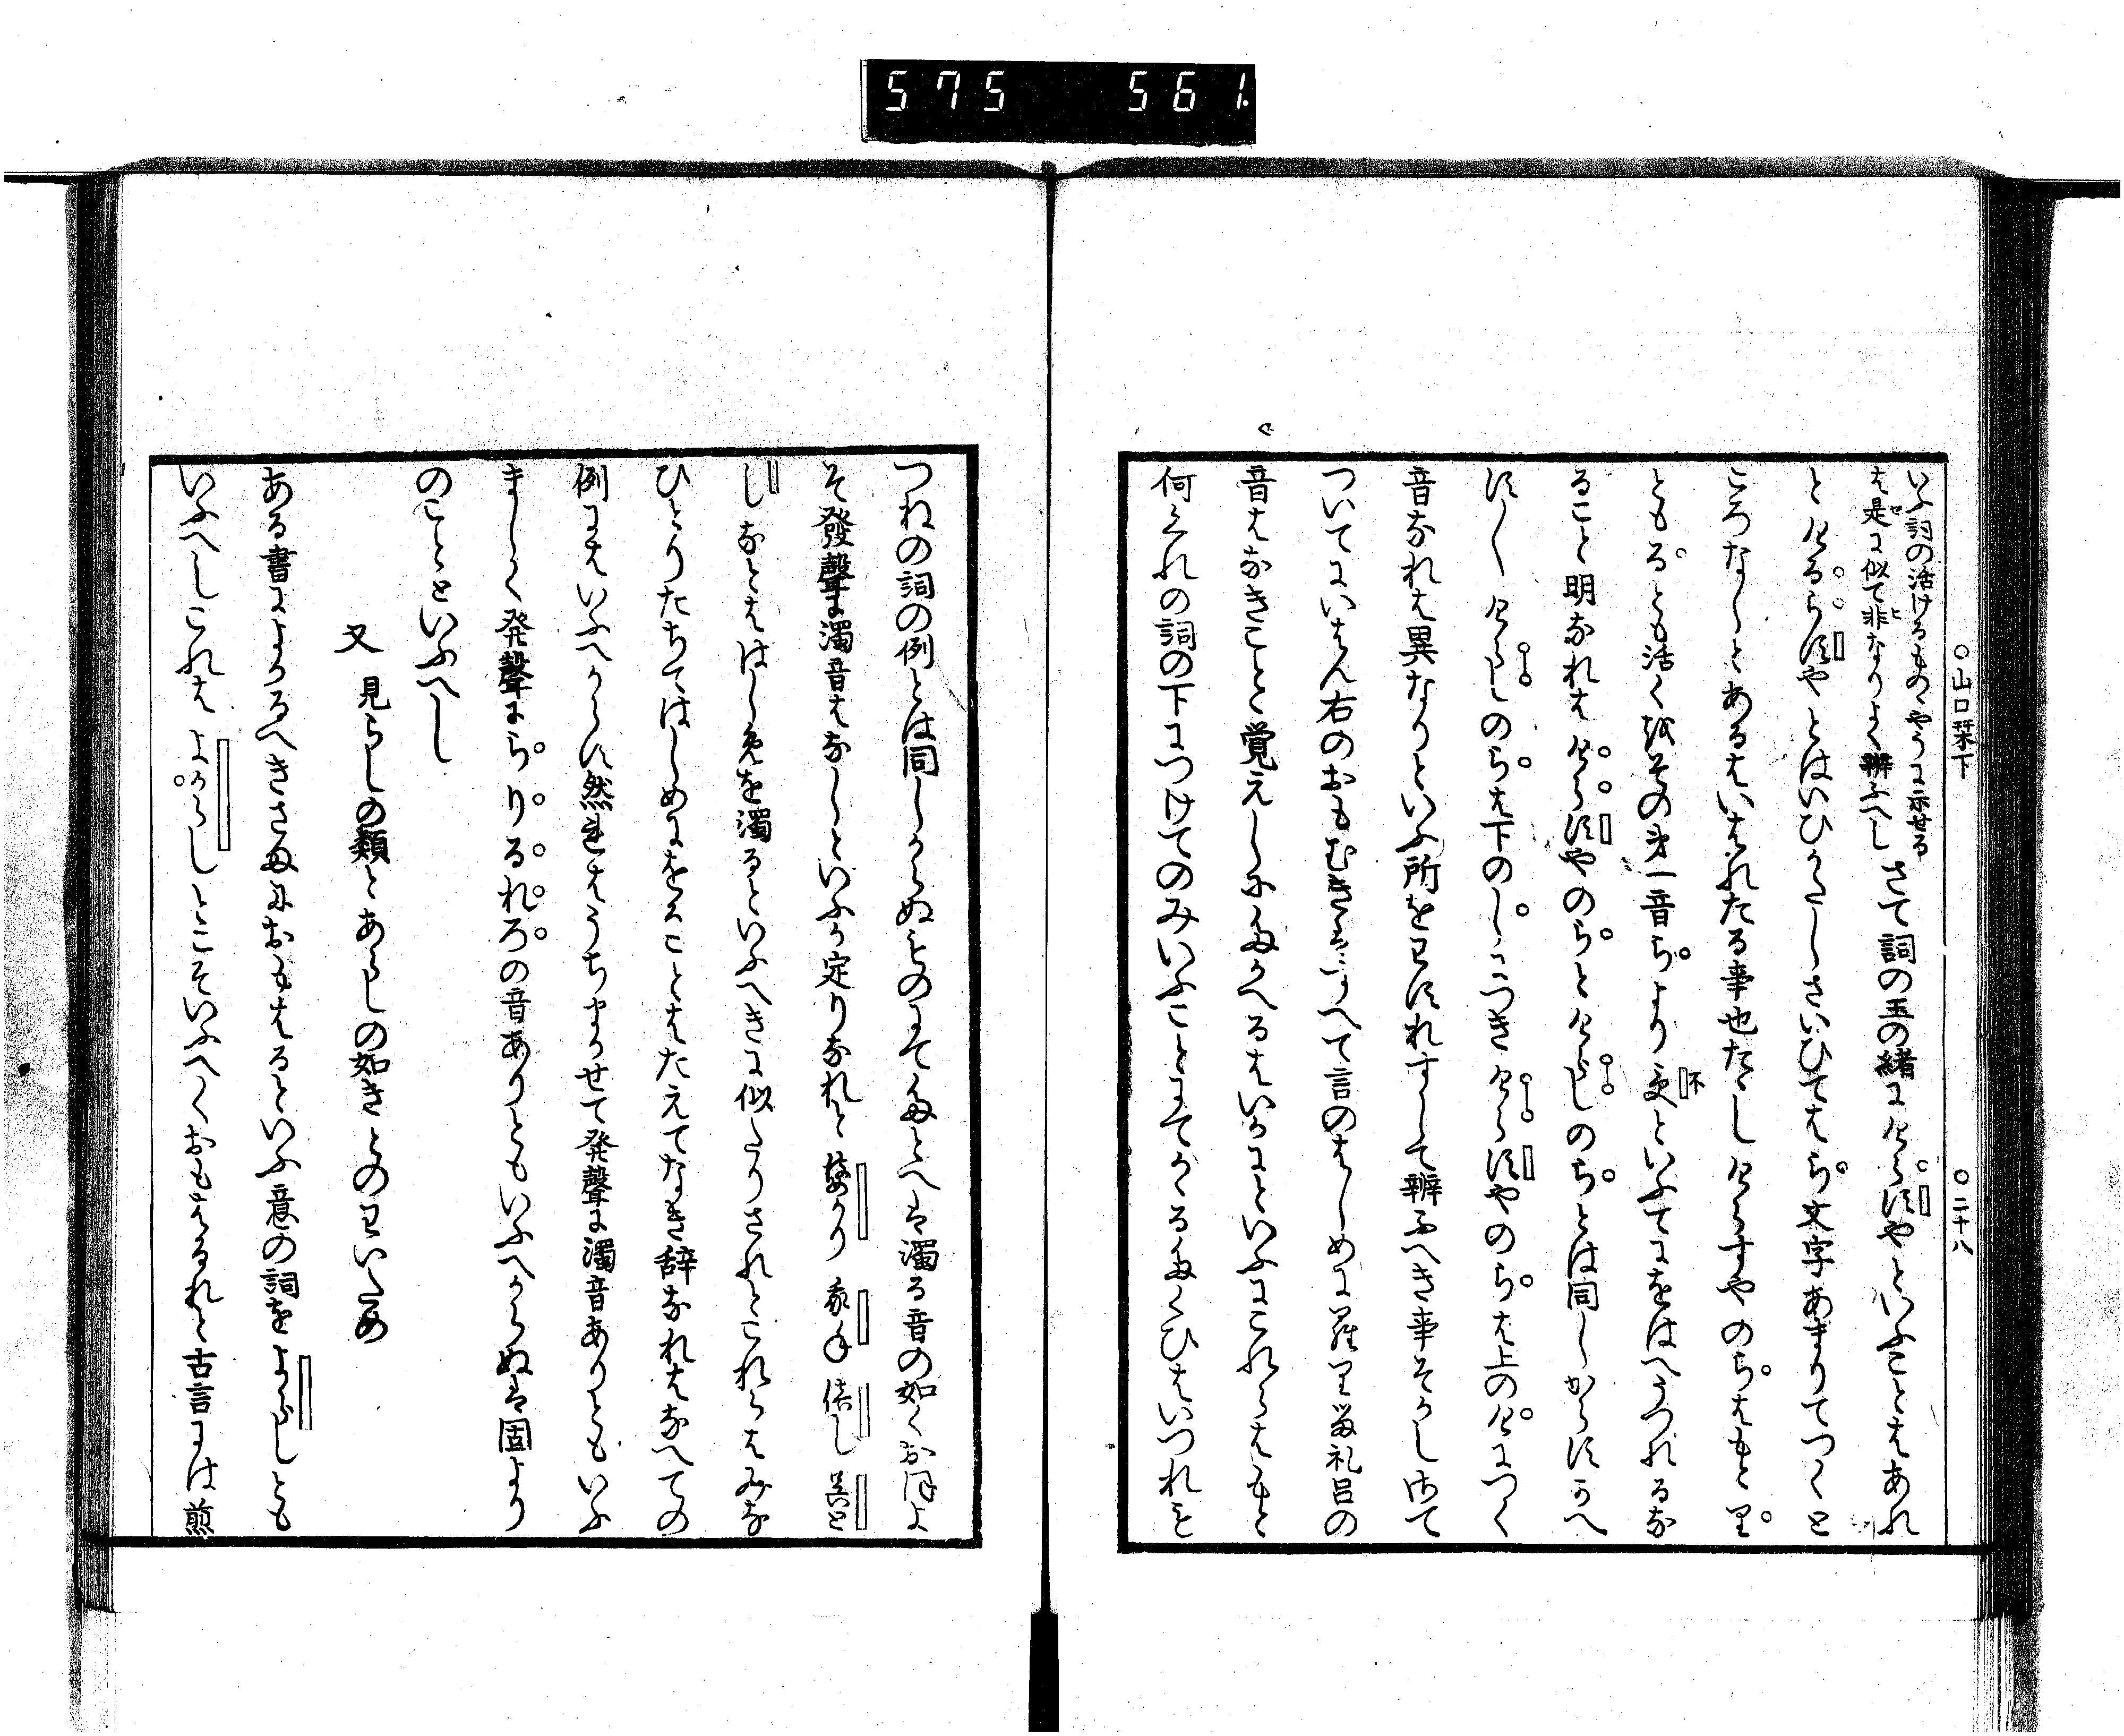 575 561.
○山口栞下 ○二十八
いふ詞の活けるものゝやうに示せる
は是に似て非なりよく辨ふへし
さて詞の玉の緒にけらすやといふことはあれ
とけるらすやとはいひかたしさいひてはら文字あまりてつくと
ころなしとあるはいはれたる事也たゝしけらすやのらはもとり
ともるとも活く故その第一音らより受といふてにをはへうつれるな
ること明なれはけらすやのらとけらしのらとは同しからすかへ
す〳〵けらしのらは下のしにつきけらすやのらは上のけにつく
音なれは異なりといふ所をわすれすして辨ふへき事そかし
ついてにいはん右のおもむき
言のはしめに羅里留礼呂の
音はなきことゝ覚えし
るはいかにといふにこれらはもと
何くれの詞の下につけてのみいふことにて
たくひはいつれも
つねの詞の例とは同しからぬものにてたとへは濁る音の如くおほよ
そ發聲に濁音はなしといふか定りなれと
しなとははしめを濁るといふへきに似たりされとこれらはみな
ひとりたちてはしめにをることはたえてなき辞なれはなへての
例にはいふへからす然れはうちまかせて発聲に濁音ありともいふ
ましく発聲にらりるれろの音ありともいふへからぬは固より
のことゝいふへし
又 見らしの類とあらしの如きとのわいため
ある書によかるへきさまにおもはるといふ意の詞をよらしとも
いふへしこれはよからしとこそいふへくおもはるれと古言には煎